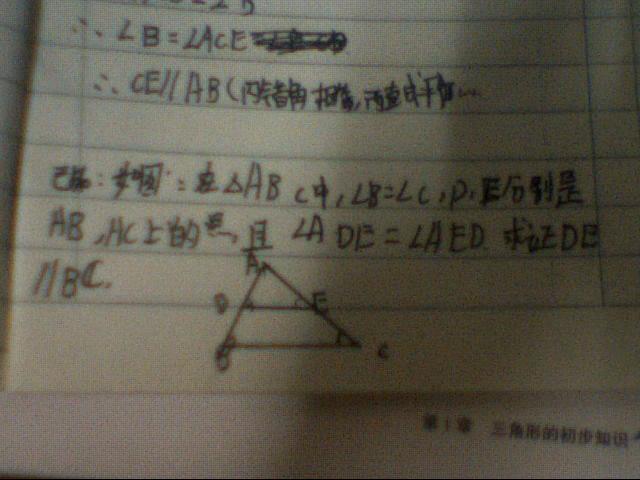 ∴ ∠B=∠ACE
∴ CE∥AB(内错角相等,两直线平行
已知:如图:在△ABC中,∠B=∠C,D,E分别是
AB,AC上的点,且∠ADE=∠AED 求证DE
∥BC.
A
D E
B C
第1章 三角形的初步知识